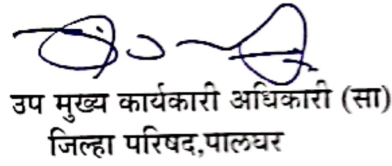 उप मुख्य कार्यकारी अधिकारी (सा)
जिल्हा परिषद,पालघर